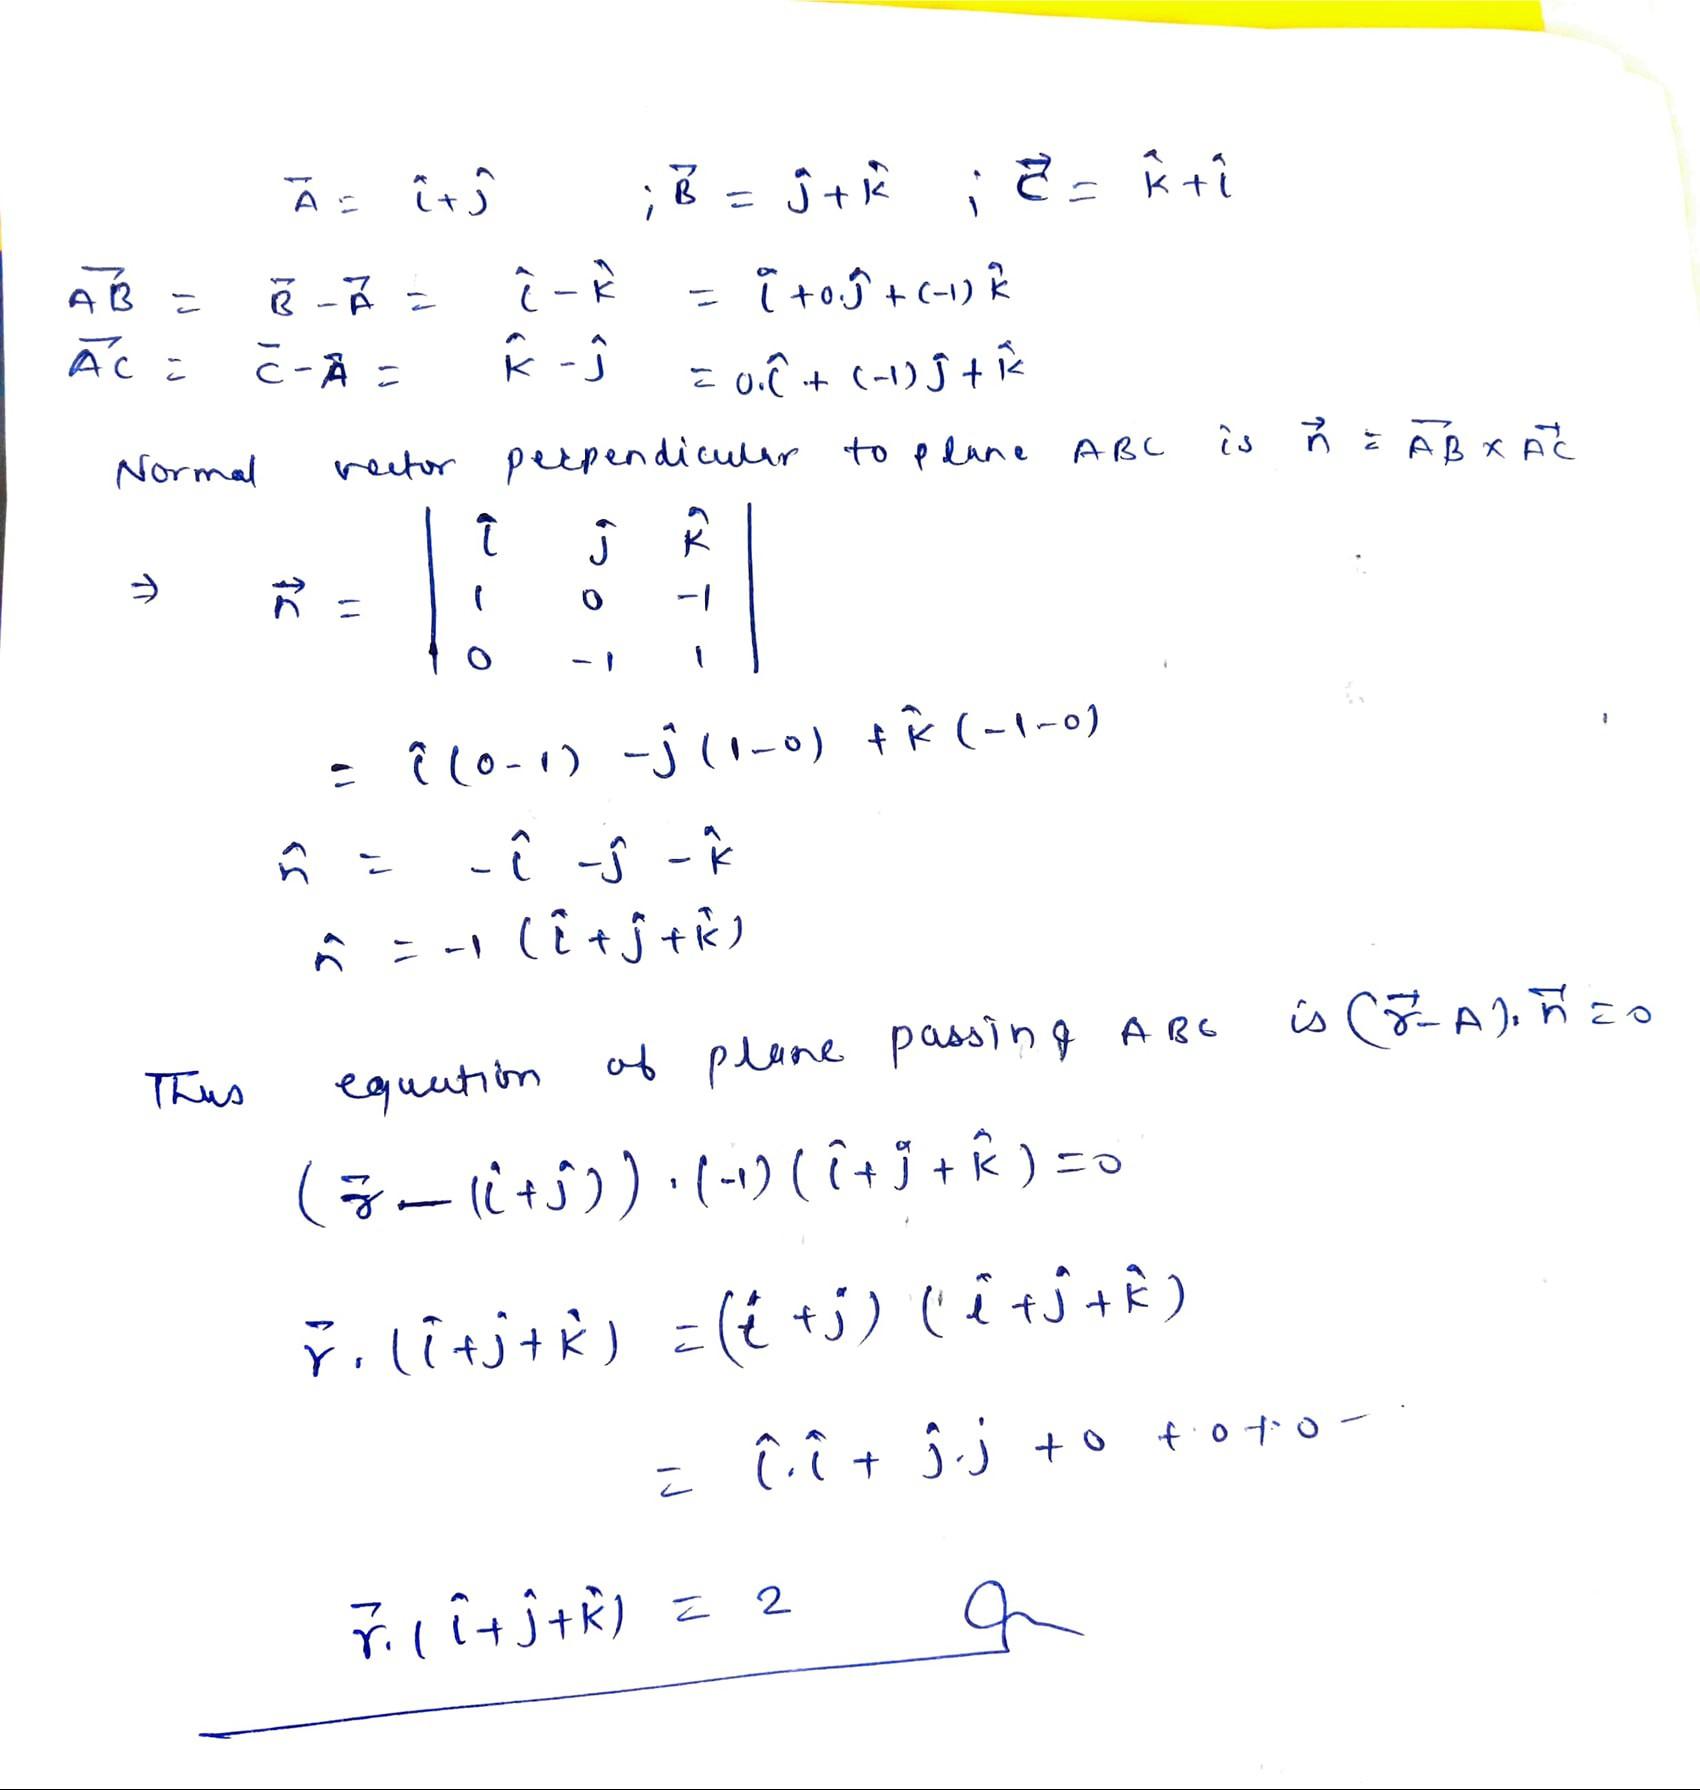 A⃗ = î+ĵ ; B⃗ = ĵ+k̂ ; C⃗ = k̂+î
A⃗B = B⃗ - A⃗ = î - k̂ = î+0.ĵ+(-1)k̂
A⃗C = C⃗ - A⃗ = k̂ - ĵ = 0.î + (-1)ĵ + k̂
Normal vector perpendicular to plane ABC is n⃗ = A⃗B × A⃗C
⇒ n⃗ = | î ĵ k̂ |
| 1 0 -1 |
| 0 -1 1 |
= î(0-1) -ĵ(1-0) +k̂(-1-0)
n̂ = -î -ĵ -k̂
n̂ = -1 (î+ĵ+k̂)
Thus equation of plane passing ABC is (r⃗-A).n⃗=0
(r⃗ - (î+ĵ)).(-1)(î+ĵ+k̂)=0
r⃗.(î+ĵ+k̂) = (î+j) (î+ĵ+k̂)
= î.î + ĵ.j + 0 + 0 + 0 -
r⃗.(î+ĵ+k̂) = 2